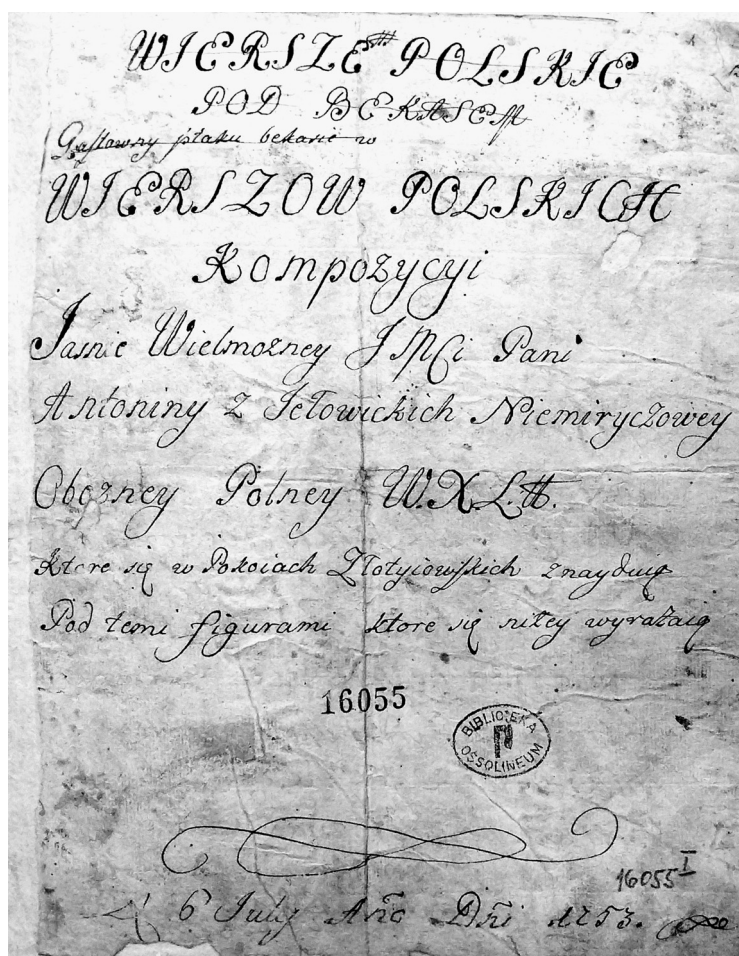 WIERSZE POLSKIE
POD BEKASEM
ptaku bekasie w
WIERSZOW POLSKICH
Kompozycyi
Jasnie Wielmozney JMCi Pani
Antoniny z Jełowickich Niemiryczowey
Obozney Polney W.X.L.tt.
Ktore się w Pokoiach Złotyiowskich znayduią
Pod temi figurami ktore się niżey wyrażaią
16055
BIBLIOTEKA
P
OSSOLINEUM
16055 I
6 July Año Dñi 1753.